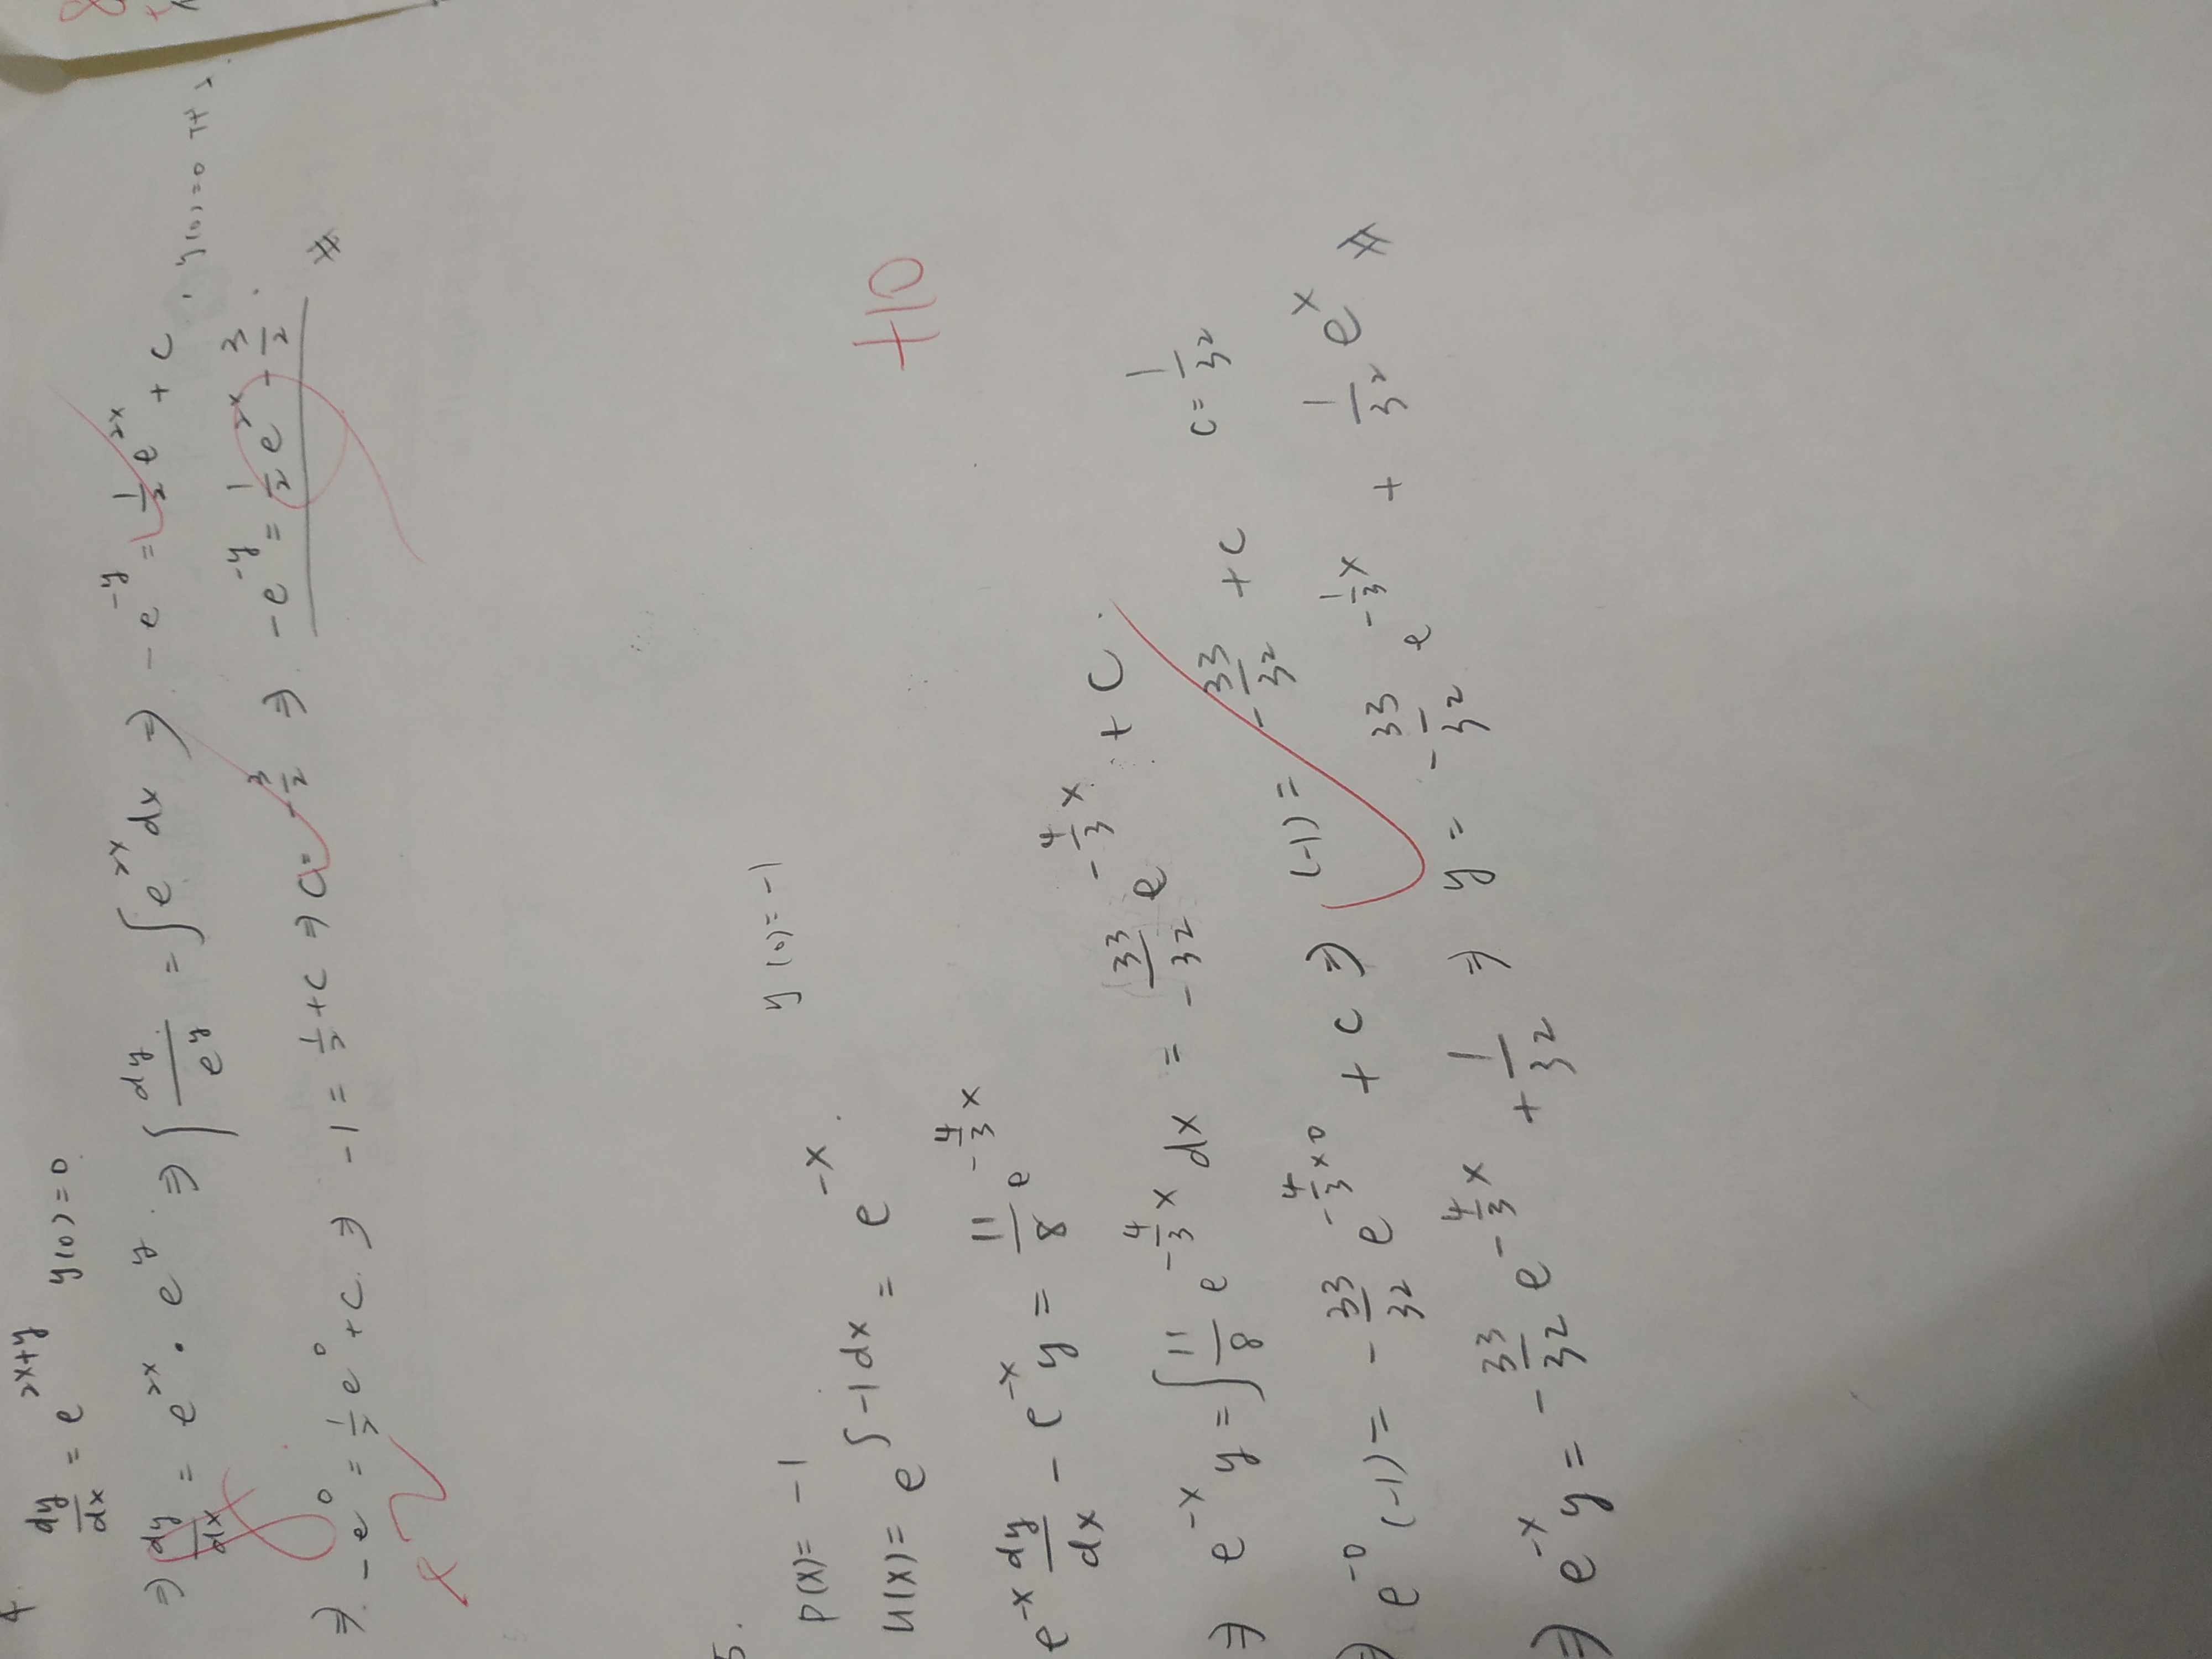 4.
dy/dx = e^(2x+y) y(0)=0
⇒ dy/dx = e^(2x) · e^y ⇒ ∫ dy/e^y = ∫ e^(2x) dx ⇒ -e^(-y) = 1/2 e^(2x) + c , y(0)=0
⇒ -e^0 = 1/2 e^0 + c ⇒ -1 = 1/2 + c ⇒ c = -3/2 ⇒ -e^(-y) = 1/2 e^(2x) - 3/2 .
5.
p(x) = -1 y(0) = -1
u(x) = e^(∫-1dx) = e^(-x) .
+10
e^(-x) dy/dx - e^(-x) y = 11/8 e^(-4/3 x)
⇒ e^(-x) y = ∫ 11/8 e^(-4/3 x) dx = -33/32 e^(-4/3 x) + C .
⇒ e^(-0) (-1) = -33/32 e^(-4/3 × 0) + c ⇒ (-1) = -33/32 + c c = 1/32
⇒ e^(-x) y = -33/32 e^(-4/3 x) + 1/32 ⇒ y = -33/32 e^(-1/3 x) + 1/32 e^x